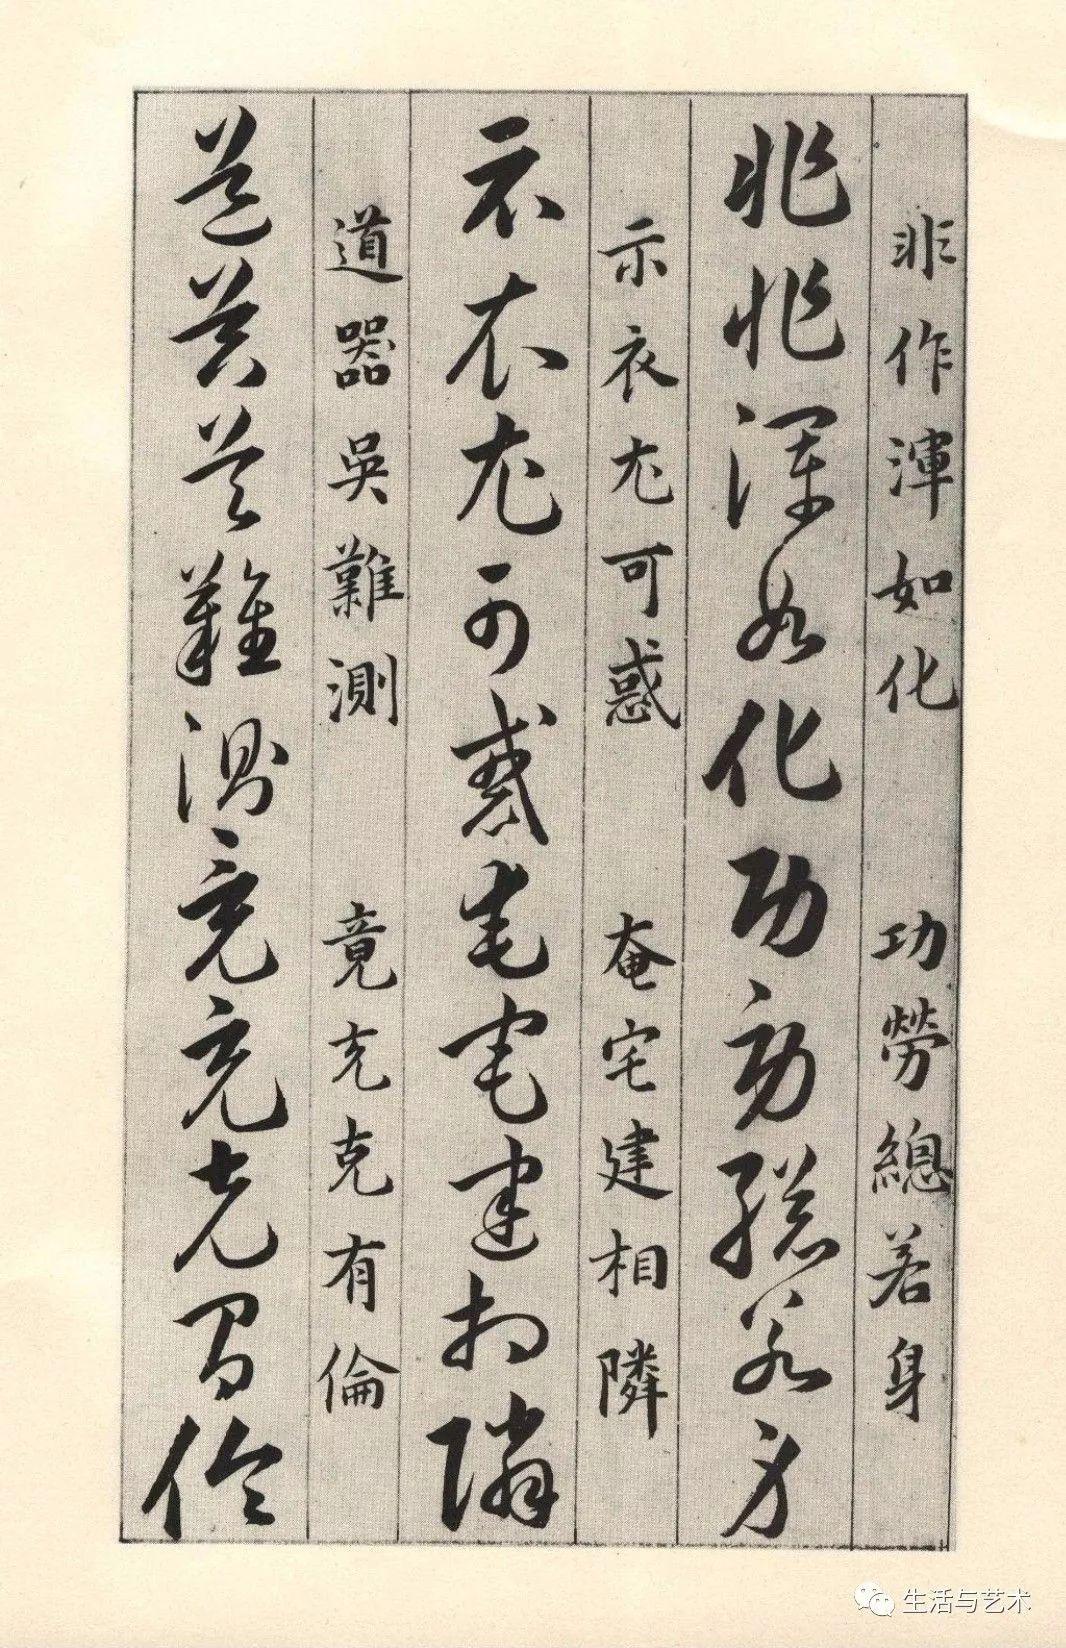 非作渾如化 功勞總若身
非作渾如化功勞總若身
示衣尤可惑 奄宅建相隣
示衣尤可惑奄宅建相隣
道器吳難測 竟充克有倫
道器吳難測竟充克有倫
生活与艺术